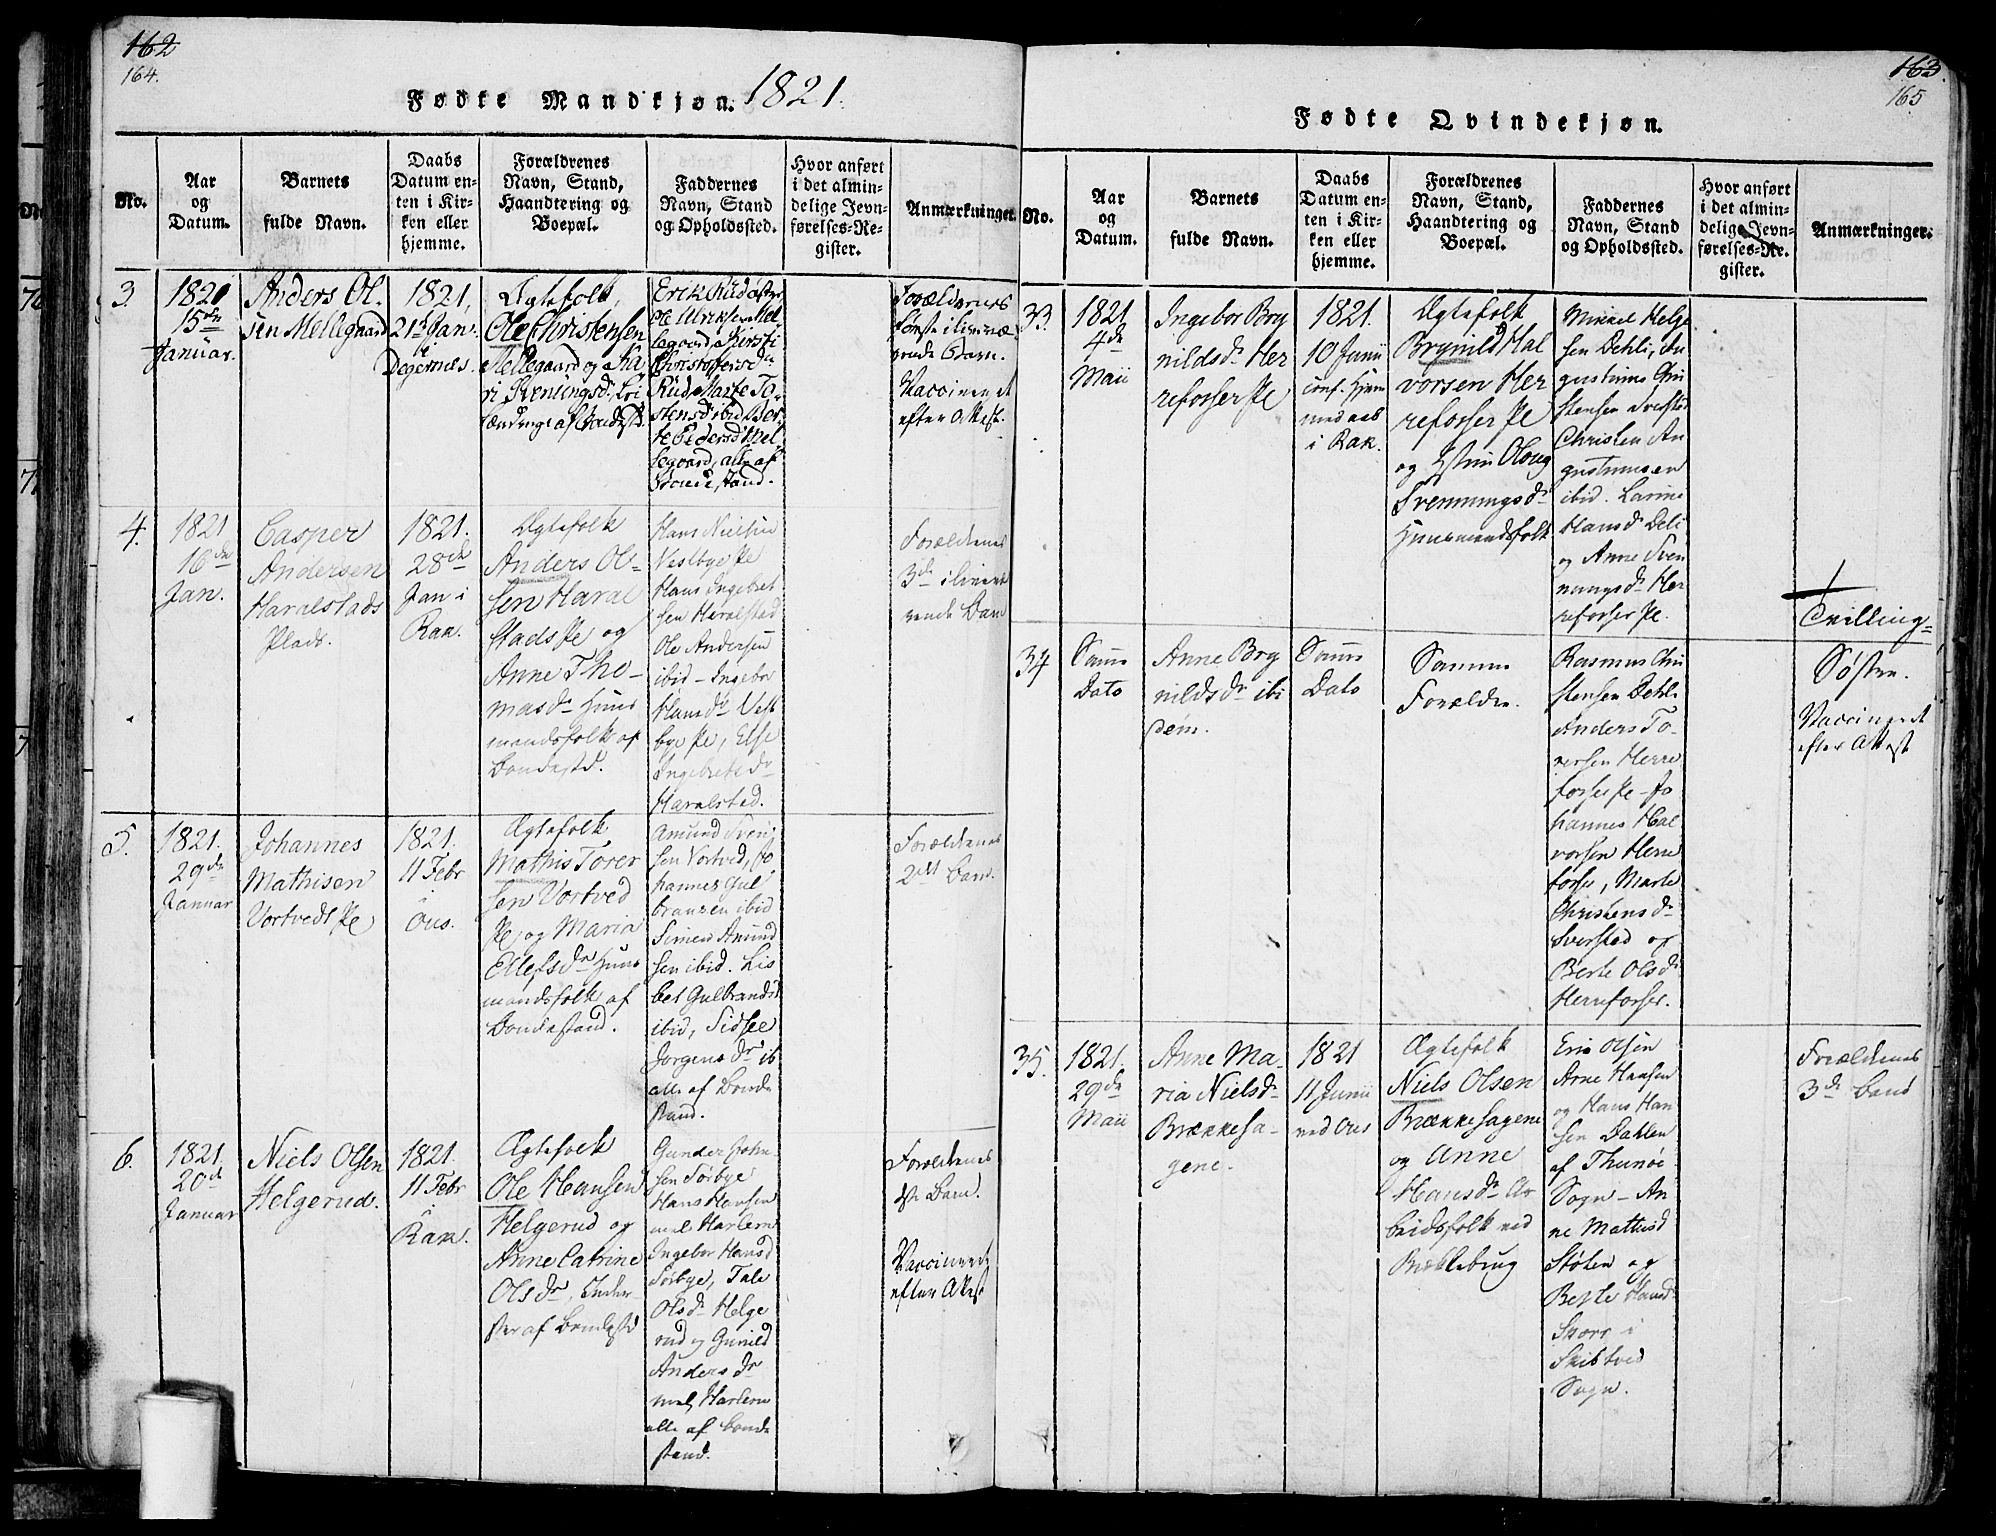 162
164.
Fødte Mandkjøn. 1821.
No.
Aar
og
Datum.
Barnets
fulde Navn.
Daabs
Datum en-
ten i Kir-
ken eller
hjemme.
Forældrenes
Navn, Stand,
Haandtering og
Boepæl.
Faddernes
Navn, Stand
og Opholdssted.
Hvor anført
i det almin-
delige Jevn-
førelses-Re-
gister.
Anmærkninger.
3.
1821
15de
Januar.
Anders Ol-
sen Mellegaard
1821.
21de Jan.
Degernes.
Ægtefolk,
Ole Christensen
Mellegaard og Ka-
ri Svenningsdr.
af Bondestd.
Ole Ulriksen Mel-
legaard, Kirsti
Christophersdr.
Rud, Marte To-
stensdr ibid, Ber-
te Pedersdr Mel-
legaard, alle af
Bondestand.
Forældrenes
første
Barn.
Vaccineret
efter Attest.
4.
1821
16de
Jan.
Casper
Andersen
Haralstads
Plads.
1821.
28de
Jan i
Rak.
Ægtefolk
Anders Ol-
sen Haral
stads Pe og
Anne Tho-
masdr Huus
mandsfolk af
Bondestd.
Hans Nielsen
Vestbye Pe
Hans Ingebret
sen Haralstad
Ole Andersen
ibid - Ingebor
Hansdr Vest
bye Pe, Else
Ingebretsdr
Haralstad.
Forældrenes
3de
Barn
5.
1821.
29de
Januar
Johannes
Mathisen
Vortvedt Pe
1821.
11 Febr
i
Ous.
Ægtefolk
Mathis Torer
sen Vortved
Pe og Maria
Ellefsdr Huus
mandsfolk af
Bondestand.
Amund Sven
sen Vortved, Jo
hannes Gul
bransen ibid
Simen Amund
sen ibid. Lis
bet Gulbrandsd
ibid, Sidsee
Jørgensdr ib
alle af Bonde
stand.
Forældrenes
2det Barn.
6.
1821.
20de
Januar
Niels Olsen
Helgerud.
1821.
11 Febr
i
Rak.
Ægtefolk
Ole Hansen
Helgerud og
Anne Catrine
Olsdr, Inder-
ster af Bondestd
Gunder John
sen Sørbye
Hans Hansen
mel Harlem
Ingebor Hansd
Sørbye, Tale
Olsdr Helge
rud og Gunild
Andersdr
mel Harlem
alle af Bonde
stand.
Forældrenes
Barn.
Vaccineret
efter Attest
163.
165
Fødte Qvindekjøn.
No.
Aar
og
Datum.
Barnets
fulde Navn.
Daabs
Datum en-
ten i Kir-
ken eller
hjemme.
Forældrenes
Navn, Stand,
Haandtering og
Boepæl.
Faddernes
Navn, Stand
og Opholdssted.
Hvor anført
i det almin-
delige Jevn-
førelses-Re-
gister.
Anmærkninger.
33.
1821
4de
Maii
Ingebor Bry
nildsdr Her
refosser Pe
1821.
10 Junii
conf. Hjem
medaab
i Rak.
Ægtefolk
Brynild Hal
vorsen Her
refosser Pe
og
Svenningsdr
Huusmandsfolk
Mikkel Helge
sen Dehli, Au
gustinus Chri
stensen Sverstad
Christen Au
gustinusen
ibid. Larine
Hansdr Deli
og Anne Sven
nungsdr Her
refosser Pe.
Tvilling-
34
Samme
Dato
Anne Bry
nildsdr ibi
dem.
Samme
Dato
Samme
Forældre.
Rasmus Chri
stensen Dehli
Anders To-
rersen Herre
fosser Pe - Jo
hannes Hal
vorsen Herre
fosser, Marte
Christensdr
Sverstad og
Berte Olsdr
Herrefosser.
Søstre.
Vaccineret
efter Attest
35.
1821.
29de
Maii
Anne Ma-
ria Nielsdr
Brækkesa-
gene.
1821
11 Junii
ved Ous
Ægtefolk
Niels Olsen
Brækkesagene
og Anne
Hansdr Ar
beidsfolk ved
Brækkebrug
Eric Olsen
Arne Hansen
og Hans Han
sen Dahlen
af Thunøe
Sogn - An
ne Mathisd
Støten og
Berte Hansd
Skorr i
Skibtved
Sogn.
Forældrenes
3de Barn